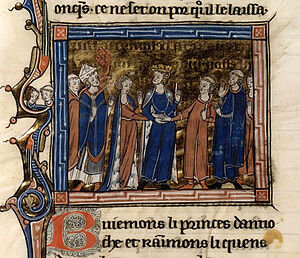 onques. ce ne set on por qͥ l le laissa.
Buiemons li princes dantio
che et raimons li quens